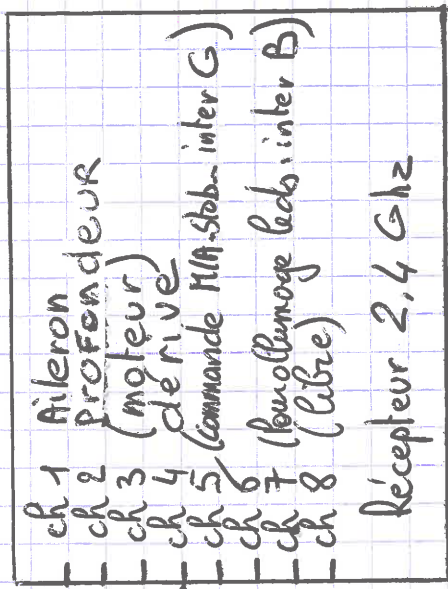 ch 1 Aileron
ch 2 Profondeur
ch 3 (moteur)
ch 4 dérive
ch 5 (Commande MIA-stab- inter G)
ch 6
ch 7 (Pour allumage leds. inter B)
ch 8 (libre)
Récepteur 2,4 Ghz